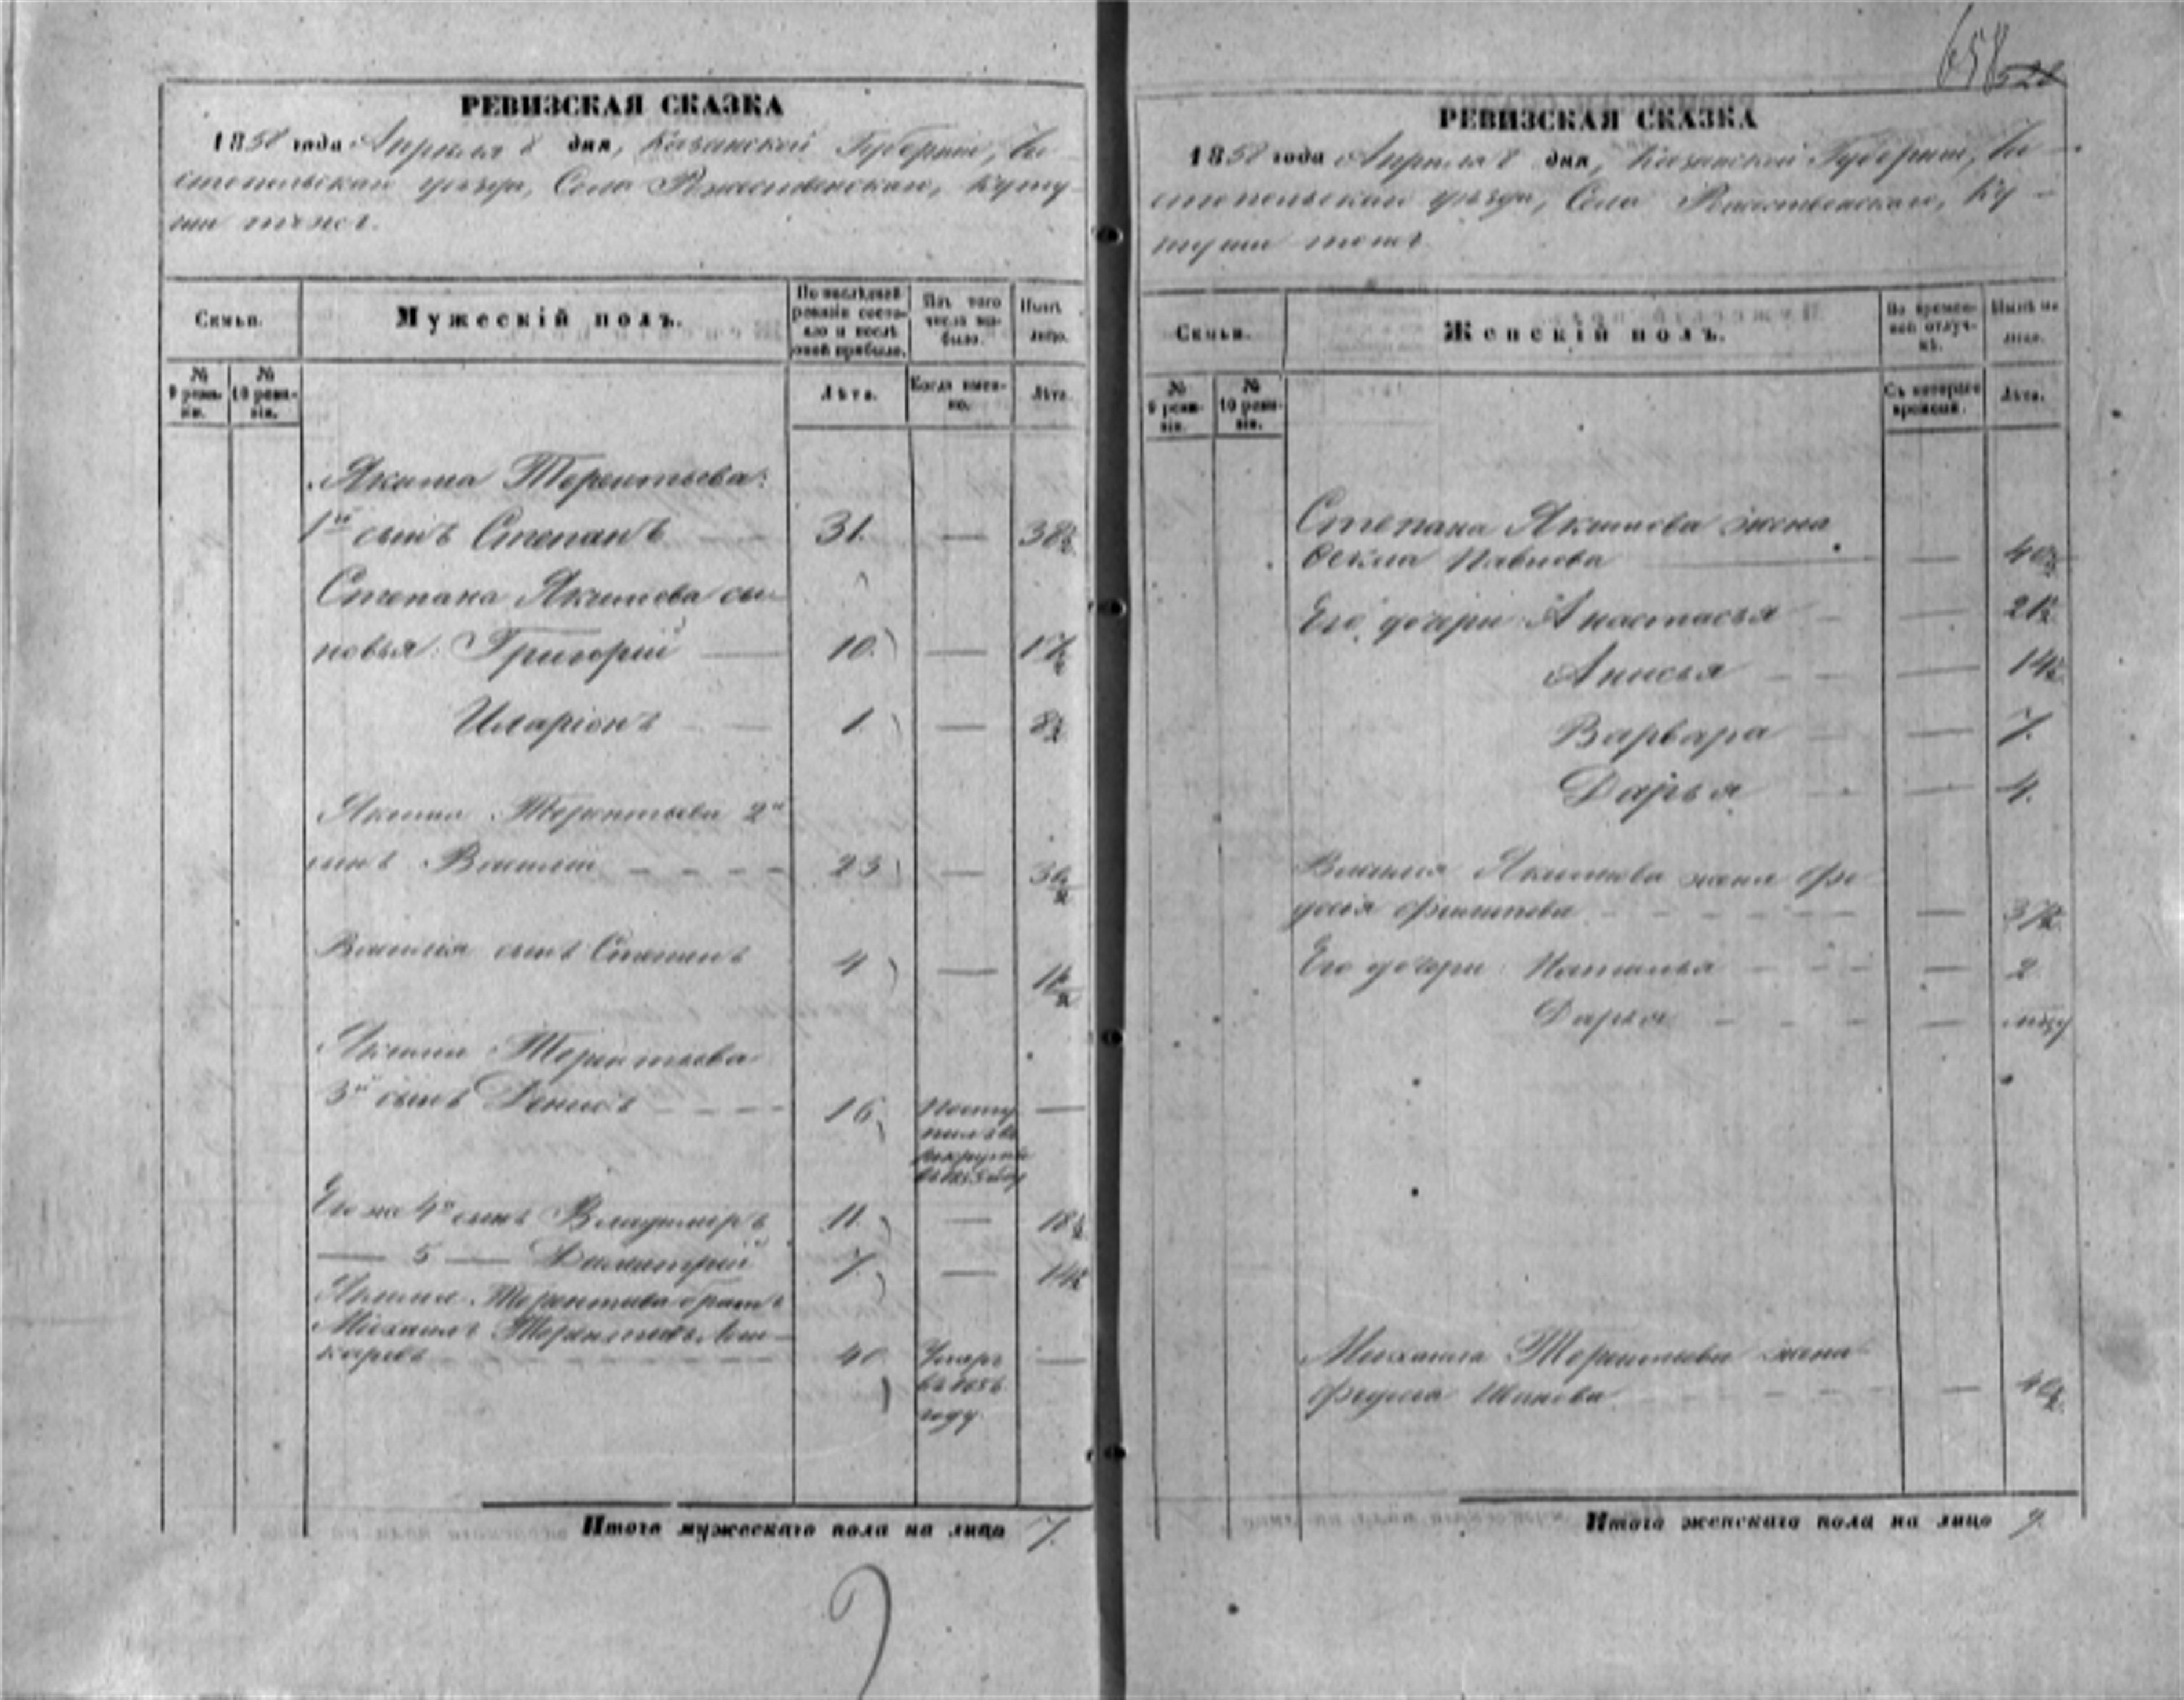 658
РЕВИЗСКАЯ СКАЗКА
1858 года Апреля 8 дня, Казанской Губернии, Чи
стопольскаго уезда, Села Рожественскаго, Куту
ши тожъ.
Семьи.
Мужескій полъ.
По послѣдней ревизіи состояло и послѣ оной прибыло.
Изъ того числа выбыло.
Нынѣ на лицо.
№ 9 ревизіи.
№ 10 ревизіи.
Лѣта.
Когда именно.
Лѣта.
Якима Терентьева:
1й сынъ Степанъ — 31. — 38½
Степана Якимова сы
новья: Григорий — 10. — 17½
Иларіонъ — 1. — 8½
Якима Терентьева 2й
сынъ Василій — 23 — 30½
Василія сынъ Степанъ 4 — 11½
Якима Терентьева
3й сынъ Денисъ — 16. Поступилъ въ рекруты —
Его же 4й сынъ Владимиръ 11. — 18½
— 5 — Димитрій 7. — 14½
Якима Терентьева братъ
Михаилъ Терентьевъ
40 Умеръ въ году —
Итого мужескаго пола на лицо 7.
РЕВИЗСКАЯ СКАЗКА
1858 года Апреля 8 дня, Казанской Губернии, Чи
стопольскаго уезда, Села Рожественскаго, Ку
туши тожъ
Семьи.
Женскій полъ.
Во временной отлучкѣ.
Нынѣ на лицо.
№ 9 ревизіи.
№ 10 ревизіи.
Съ котораго времени.
Лѣта.
Степана Якимова жена
Фекла Павлова — 40½
Его дочери: Анастасья — 21½
Анисья — 14½
Варвара — 7.
Дарья — 4.
Василія Якимова жена Фе
досія Филипова — 37½
Его дочери: Наталья — 2
Дарья —
Михаила Терентьева жена
Федосья Иванова —
Итого женскаго пола на лицо 9.